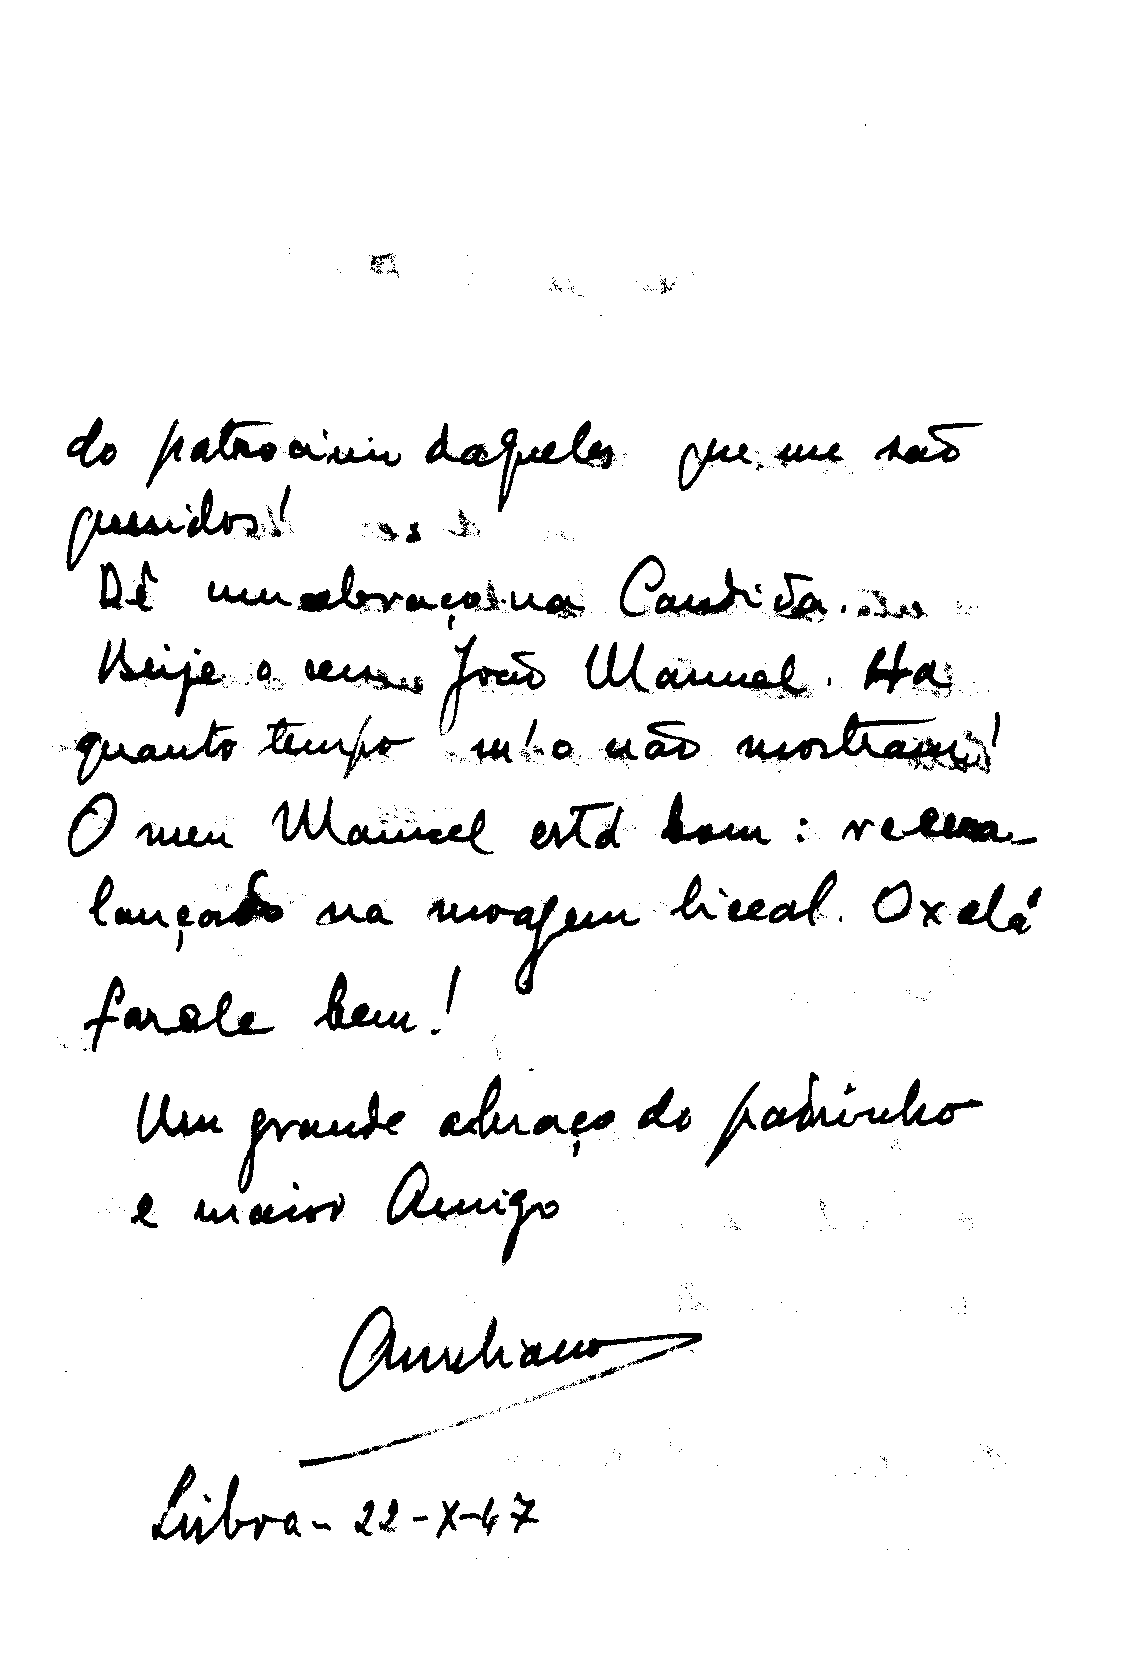 do patrocinio daqueles que me são
queridos!
Dê um abraço na Candida.
Beije o seu João Manuel. Ha
quanto tempo m'o não mostram!
O meu Manuel está bom:
lançado na moagem liceal. Oxalá
farele bem!
Um grande abraço do padrinho
e maior Amigo
Aureliano
Lisboa - 22-X-47